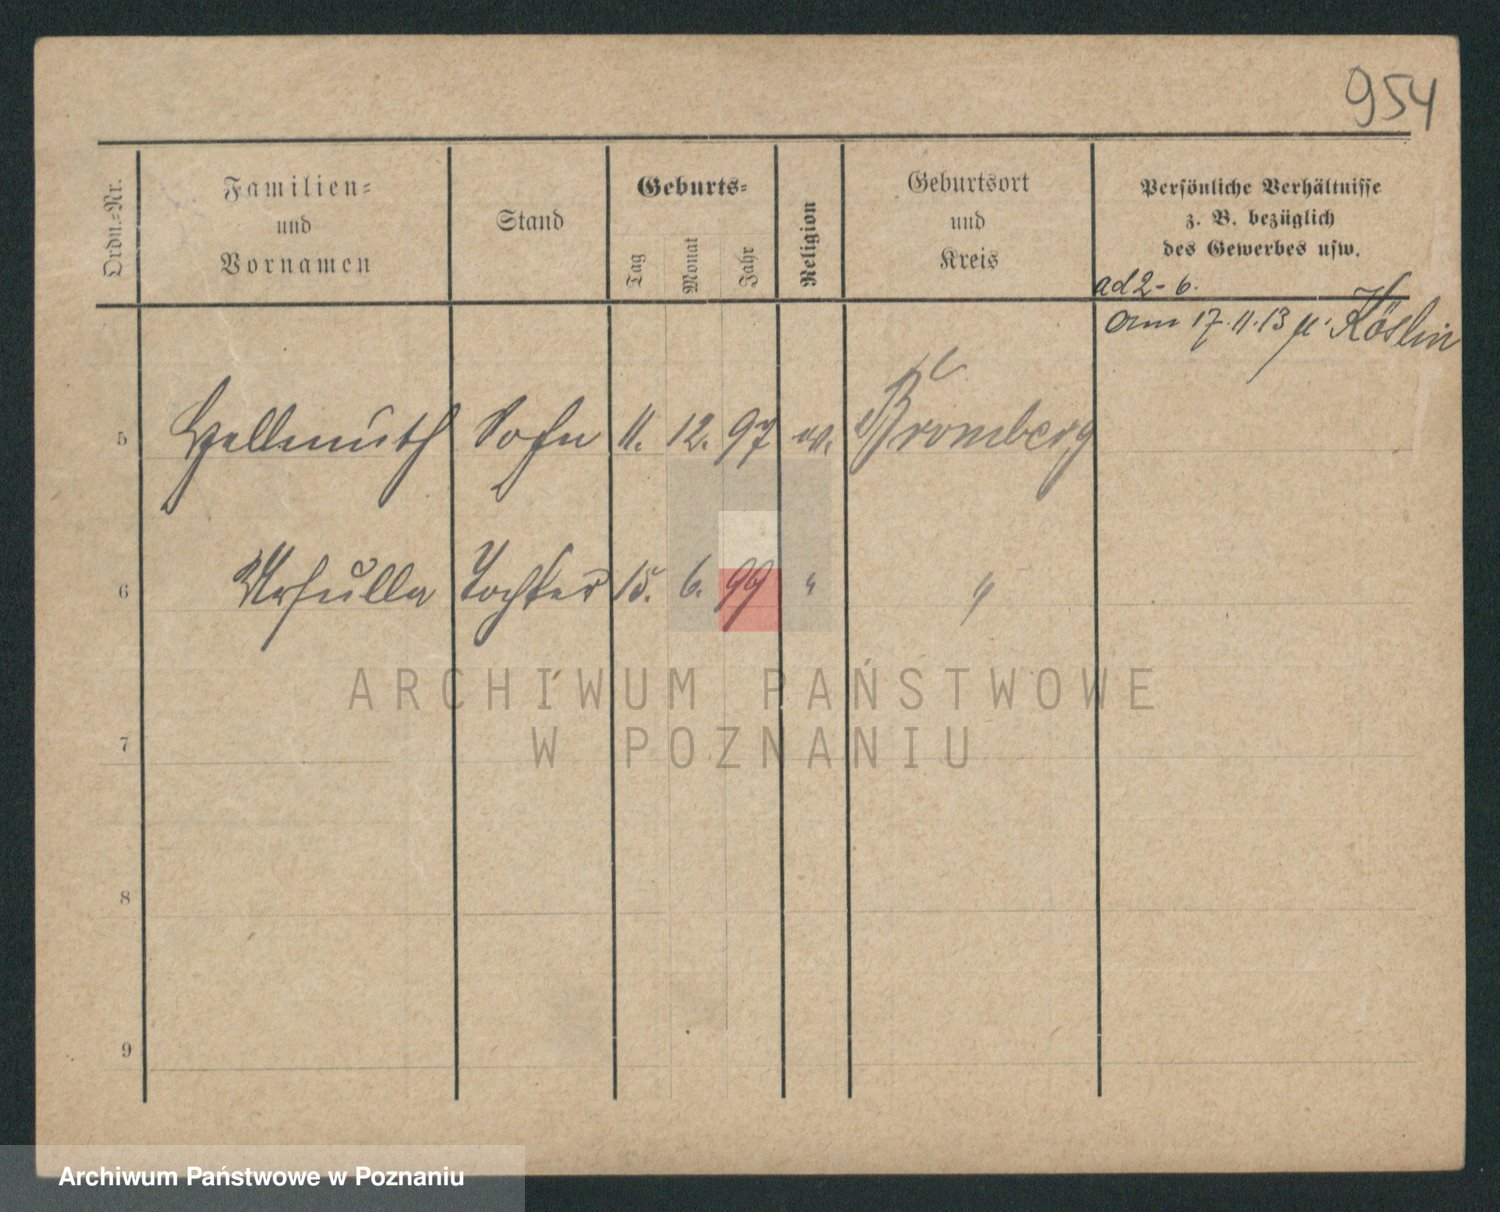 954
Ordn.-Nr.
Familien-
und
Vornamen
Stand
Geburts-
Tag
Monat
Jahr
Religion
Geburtsort
und
Kreis
Persönliche Verhältnisse
z. B. bezüglich
des Gewerbes usw.
ad 2-6.
am 17.11.13 n. Köslin
5 Hellmuth Sohn 11. 12. 97 ev. Bromberg
6 Ursulla Tochter 15. 6. 99 " "
ARCHIWUM PAŃSTWOWE
W POZNANIU
7
8
9
Archiwum Państwowe w Poznaniu